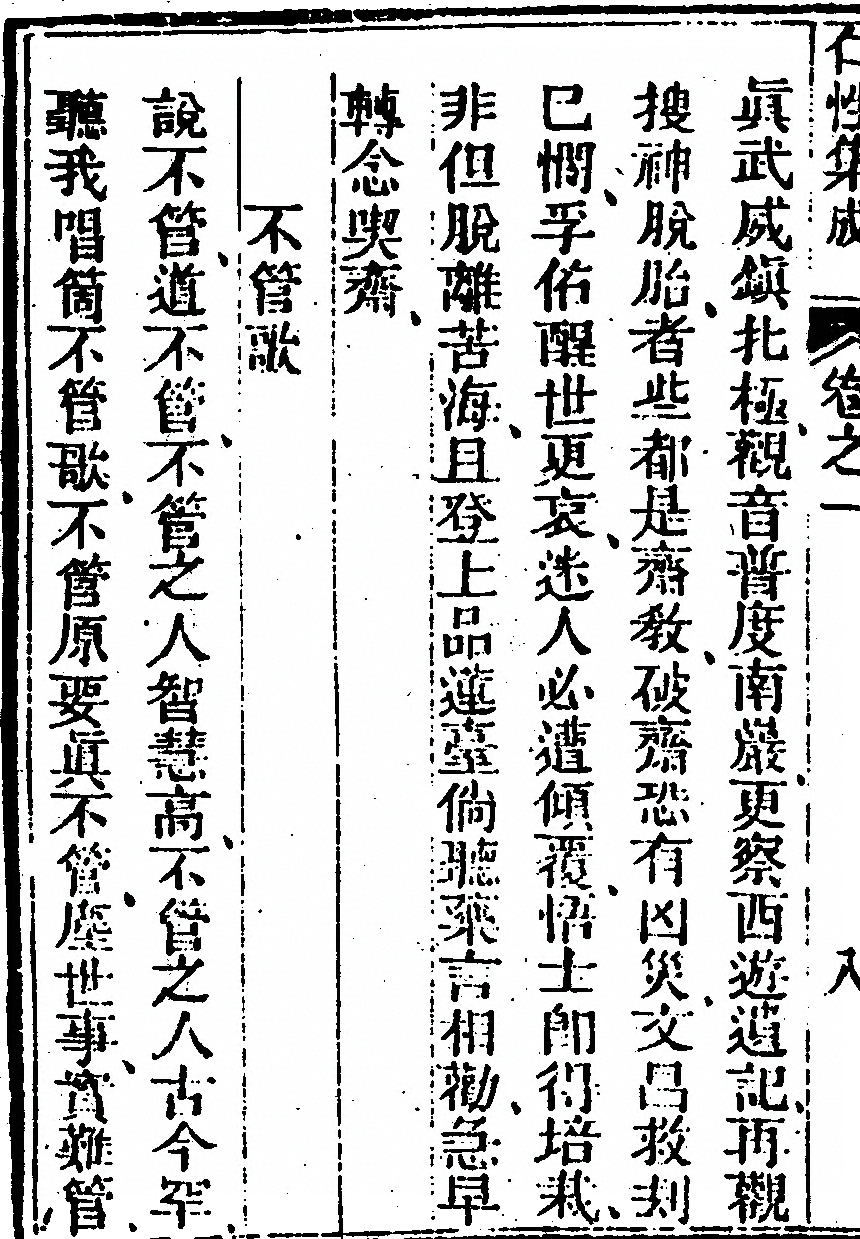 仁性集成 卷之一 八
眞武威鎭北極、觀音普度南嚴、更察西遊遺記、再觀
搜神脫胎、者些都是齋教、破齋恐有凶災、文昌救刦
已憫、孚佑醒世更哀、迷人必遭傾覆、悟士卽得培栽、
非但脫離苦海、且登上品蓮臺、倘聽藥言相勸、急早
轉念喫齋、
不管歌
說不管、道不管、不管之人智慧高、不管之人古今罕、
聽我唱箇不管歌、不管原要眞不管、塵世事、實難管、